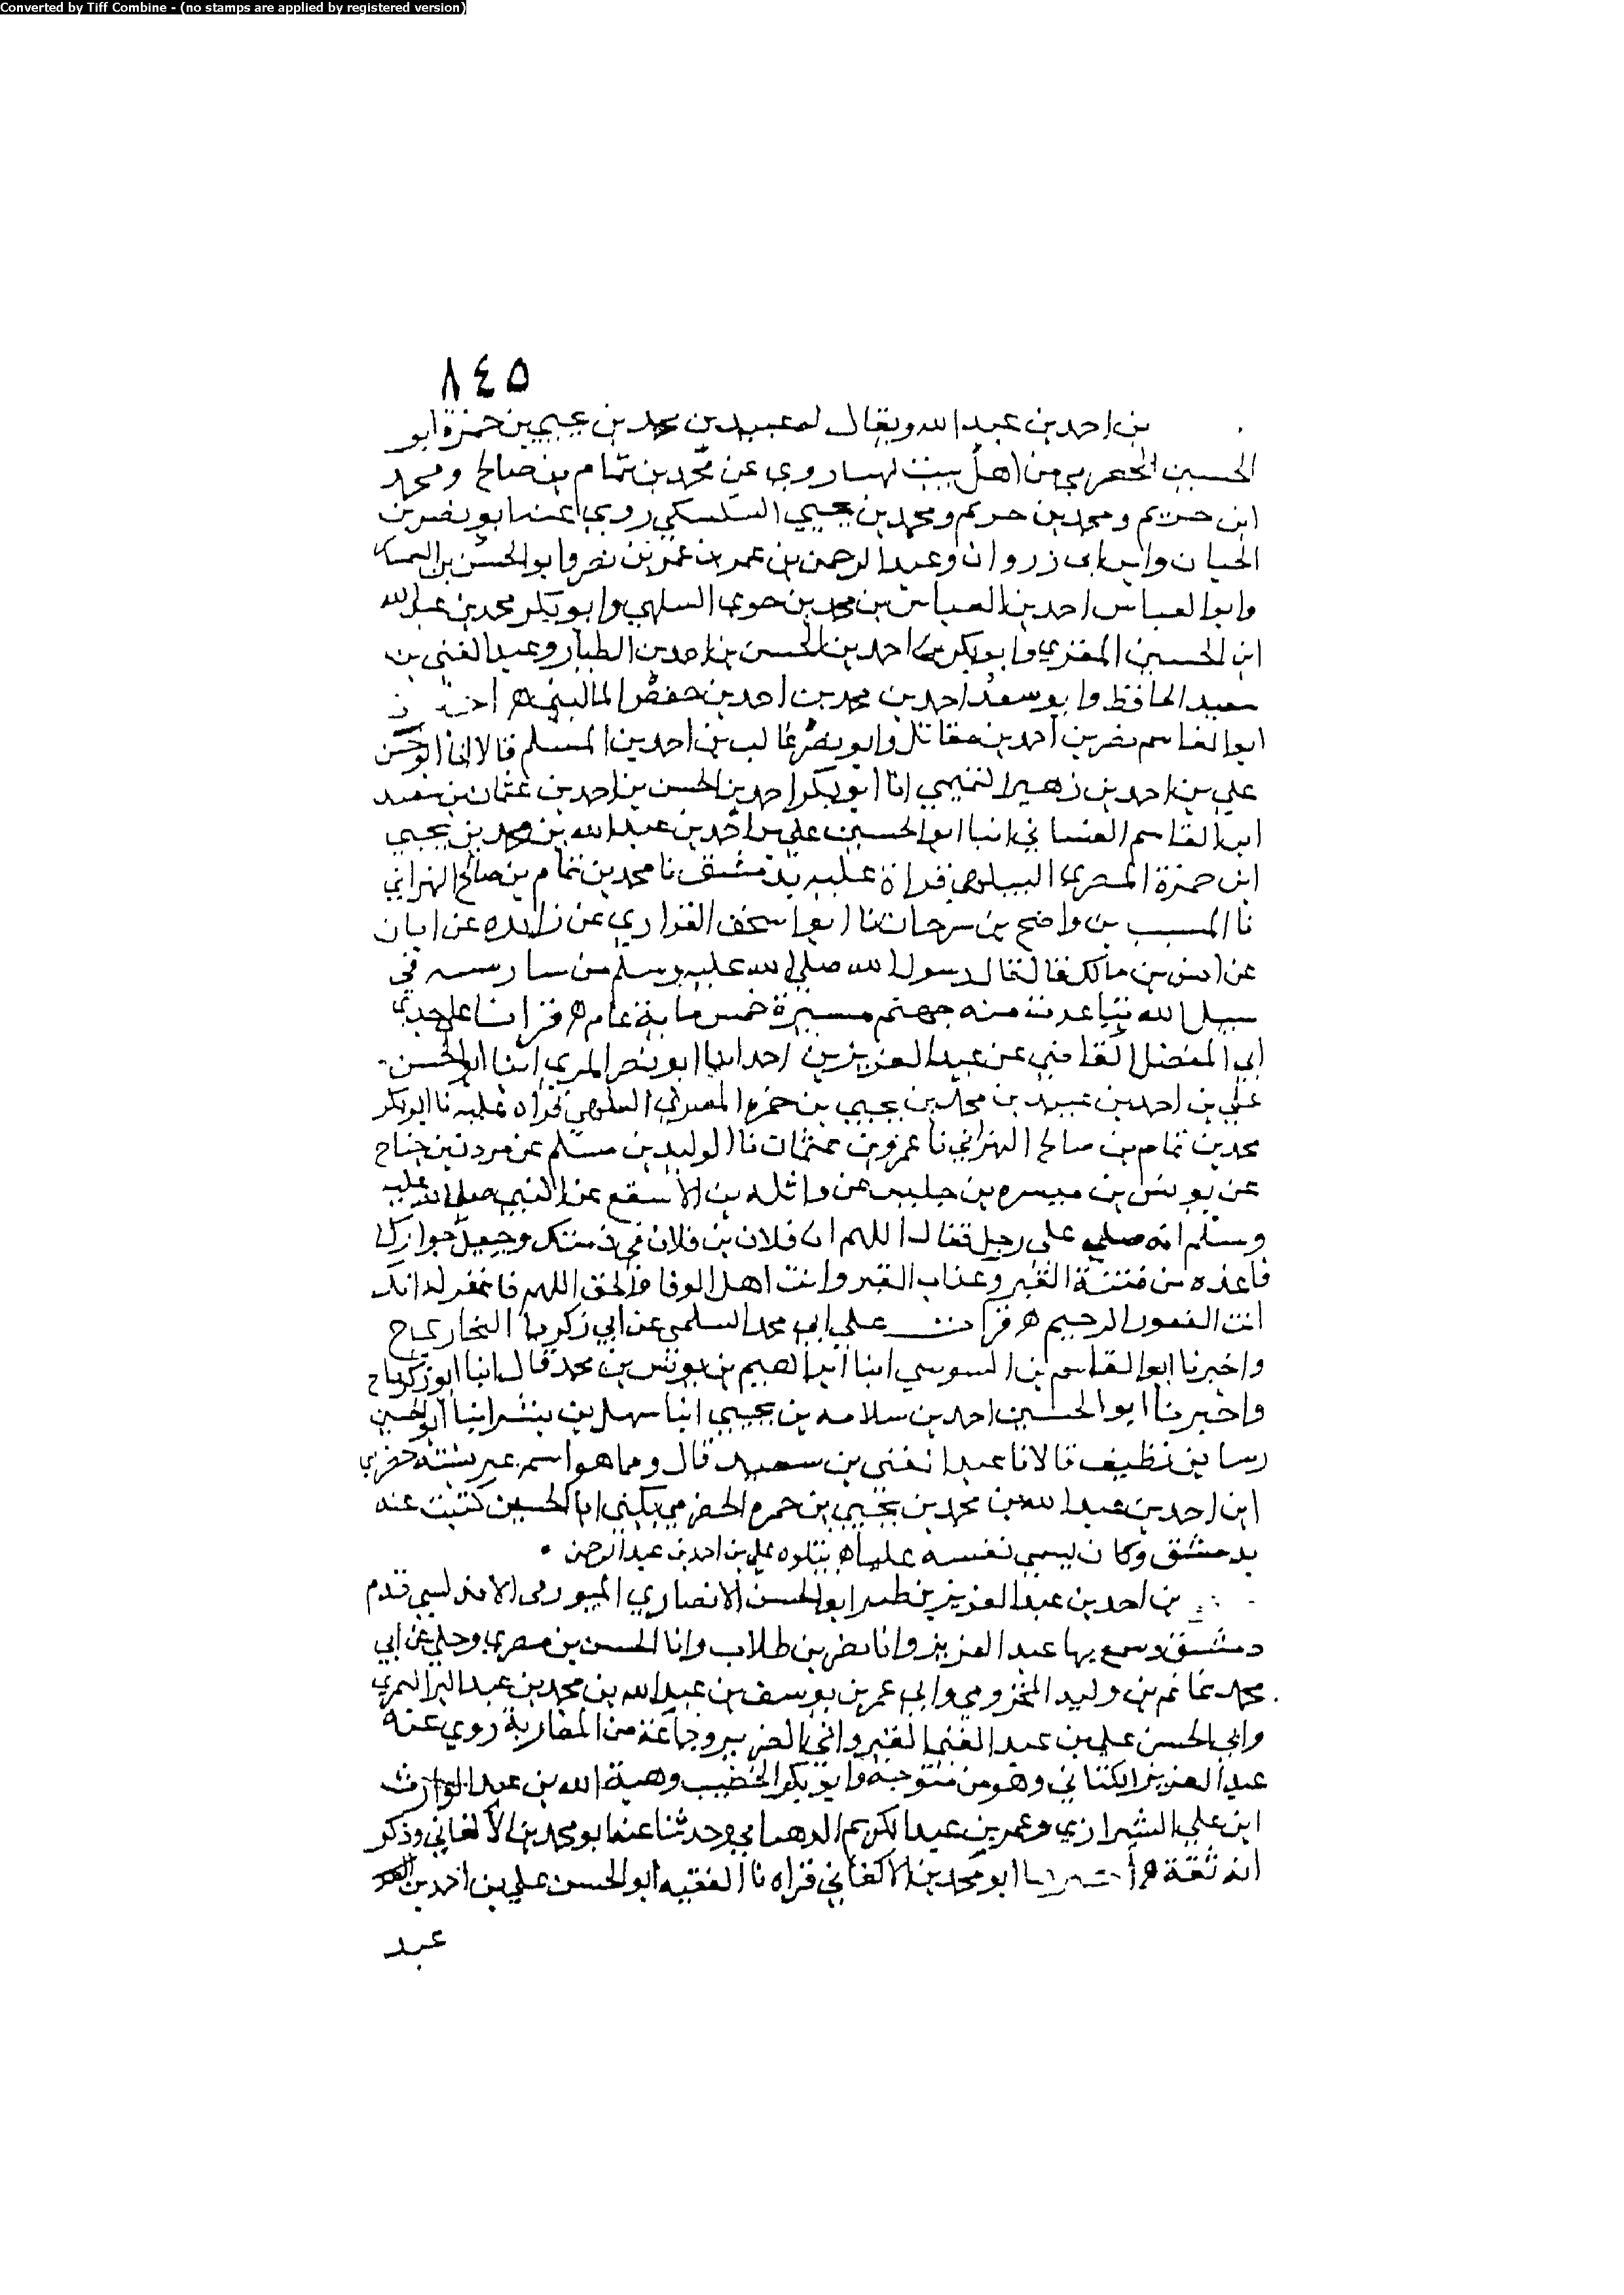 Converted by Tiff Combine - (no stamps are applied by registered version)
٨٤٥
بن احمد بن عبد الله ويقال له عبيد بن محمد بن يحيي بن حمزة ابو
الحسين الحضرمي من اهل بيت لهيا روي عن محمد بن تمام بن صالح ومحمد
ابن خريم ومحمد بن حريم ومحمد بن يحيي السكسكي روي عنه ابو نصر بن
الجبان وابن ابي زروان وعبد الرحمن بن عمر بن نصر وابو الحسن بن السمسا
وابو العباس احمد بن العباس بن محمد بن حوي السلمي وابو بكر محمد بن عبد الله
ابن الحسين المقري وابو بكر احمد بن الحسن بن احمد بن الطيار وعبد الغني بن
سعيد الحافظ وابو سعد احمد بن محمد بن احمد بن حفص الماليني ه
ابو القاسم نصر بن احمد بن مقاتل وابو نصر غالب بن احمد بن المسلم قالا انا ابو الحسن
علي بن احمد بن زهير التميمي انا ابو بكر احمد بن الحسن بن احمد بن عثمان بن سعيد
ابن القاسم الغساني انبا ابو الحسين علي بن احمد بن عبد الله بن محمد بن يحيي
ابن حمزة المصري البيلهي قراة عليه بدمشق نا محمد بن تمام بن صالح البهراني
نا المسيب بن واضح بن سرحان نا ابو اسحق الفزاري عن زايده عن ابان
عن انس بن مالك قال قال رسول الله صلي الله عليه وسلم من سار في
سبيل الله تباعدت منه جهنم مسيرة خمس ماية عام ه قرانا علي جدي
ابي المفضل القاضي عن عبد العزيز بن احمد انا ابو نصر المري انبا ابو الحسن
علي بن احمد بن عبيد بن محمد بن يحيي بن حمزه المصري قراه عليه نا ابو بكر
محمد بن تمام بن صالح البهراني نا عمرو بن عثمان نا الوليد بن مسلم عن مروان بن جناح
عن يونس بن ميسره بن حليس عن واثله بن الاسقع عن النبي صلي الله عليه
وسلم انه صلي علي رجل فقال اللهم ان فلان بن فلان في ذمتك وحبل جوارك
فاعذه من فتنة القبر وعذاب القبر وانت اهل الوفا والحق اللهم فاغفر له انك
انت الغفور الرحيم ه قرات علي ابي محمد السلمي عن ابي زكريا البخاري ح
واخبرنا ابو القاسم بن السوسي انبا ابراهيم بن يونس بن محمد قال انبا ابو زكريا ح
واخبرنا ابو الحسين احمد بن سلامه بن يحيي انبا سهل بن بشر انبا ابو الحسين
رسا بن نظيف قالا نا عبد الغني بن سعيد قال وما هو اسم غير نسبته حضرمي
ابن احمد بن عبد الله بن محمد بن يحيي بن حمزه الحضرمي يكني ابا الحسين كتبت عنه
بدمشق وكان يسمي نفسه عليا ه يتلوه علي بن احمد بن عبد الرحمن
بن احمد بن عبد العزيز بن طنيز ابو الحسن الانصاري الميورقي الاندلسي قدم
دمشق وسمع بها عبد العزيز وابا نصر بن طلاب وابا الحسن بن مصري وحكي عن ابي
محمد غانم بن وليد المخزومي وابي عمر بن يوسف بن عبد الله بن محمد بن عبد البر النمري
وابي الحسن علي بن عبد الغني القيرواني الضرير وجماعة من المغاربة روي عنه
عبد العزيز الكتاني وهو من شيوخه وابو بكر الخطيب وهبة الله بن عبد الوارث
ابن علي الشيرازي وعمر بن عبد الكريم الدهستاني وحدثنا عنه ابو محمد بن الاكفاني وذكر
انه ثقة ه ابو محمد بن الاكفاني قراه نا الفقيه ابو الحسن علي بن احمد بن
عبد